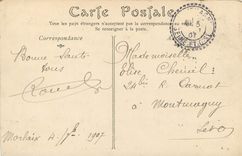 Carte Postale
Tous les pays étrangers n'acceptent pas la correspondance au verso.
Se renseigner à la poste.
Correspondance
Bonne Santé
tous
Morlaix 4 1907
Mademoiselle
Élise
24bis R. Carnot
à Montmagny
S et O